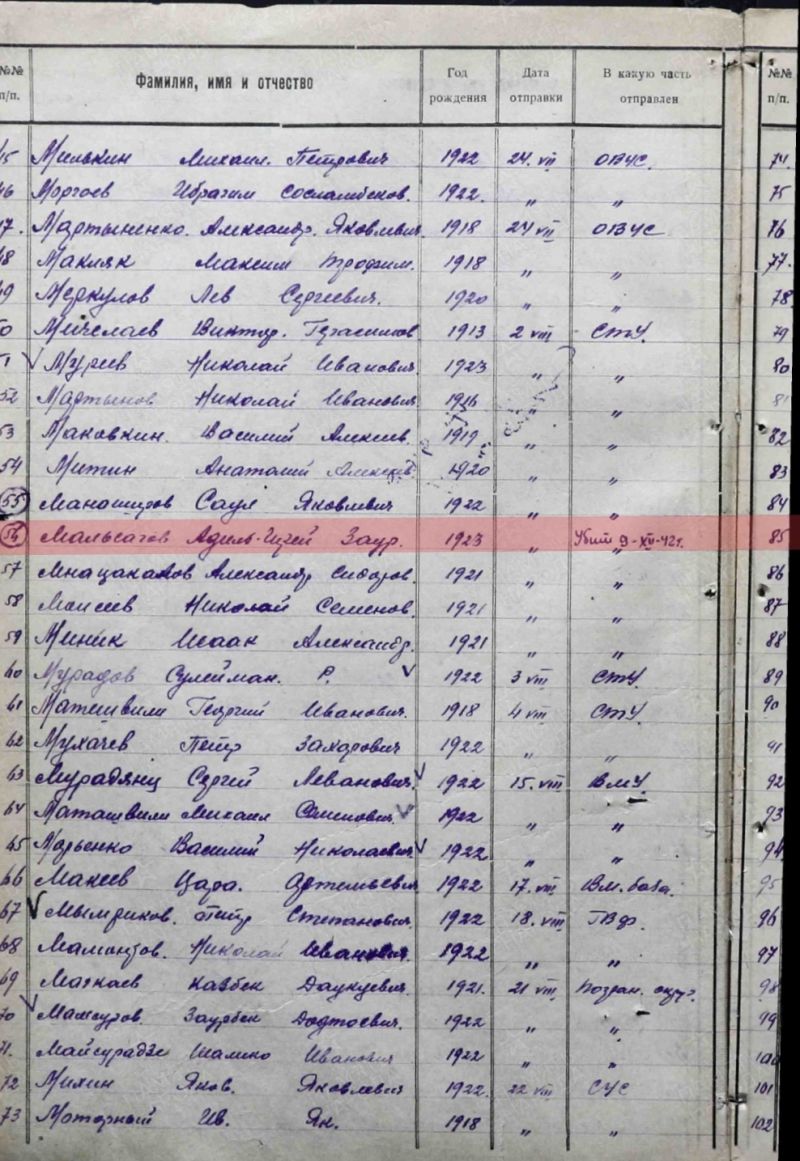 №№ п/п. Фамилия, имя и отчество Год рождения Дата отправки В какую часть отправлен №№ п/п.
45 Милькин Михаил Петрович 1922 24. VII ОВЧС. 74
46 Моргоев Ибрагим Сосламбеков. 1922. " " 75
47. Мартыненко. Александр. Яковлевич. 1918 24 VII ОВЧС 76
48 Макляк Максим Трофим. 1918 " " 77.
49 Меркулов Лев Сергеевич. 1920 " " 78.
50 Виктор. Герасимов 1913 2 VIII СТУ. 79
51 Муреев Николай Иванович 1923 " " 80
52 Мартынов Николай Иванович 1916 " " 81
53 Маковкин. Василий Алексеев. 1919 " " 82
54 Митин Анатолий Алексеев. 1920 " " 83
55 Маноширов Саул Яковлевич 1922 " " 84
56 Мальсагов Адиль-Гирей Заур. 1923 " Убит 9-XII-42г. 85
57 Мнацаканов Александр Сидоров. 1921 " " 86
58 Моисеев Николай Семенов. 1921 " " 87
59 Миник Исаак Александр. 1921 " " 88
60 Мурадов Сулейман. Р. 1922 3 VIII СТУ. 89
61 Матешвили Георгий Иванович. 1918 4 VIII СТУ 90
62 Мухачев Петр Захарович 1922 " " 91
63 Мурадянц Сергей Леванович. 1922 15. VIII ВМУ. 92
64 Маташвили Михаил Семенович. 1922 " " 93
65 Марьенко Василий Николаевич 1922 " " 94
66 Макеев Цара. Артемьевич 1922 17. VIII Вм. база. 95
67 Мымриков. Петр Степанович. 1922 18. VIII ГВФ. 96
68 Мамонтов. Николай Иванович. 1922 " " 97
69 Казбек Даукуевич. 1921. 21 VIII Погран. округ. 98
70 Мамсуров. Заурбек Додтоевич. 1922 " " 99
71. Майсурадзе Шалико Иванович 1922 " " 100
72 Михин Яков. Яковлевич 1922. 22 VIII СУС 101
73 Моторный Ив. Як. 1918 " " 102